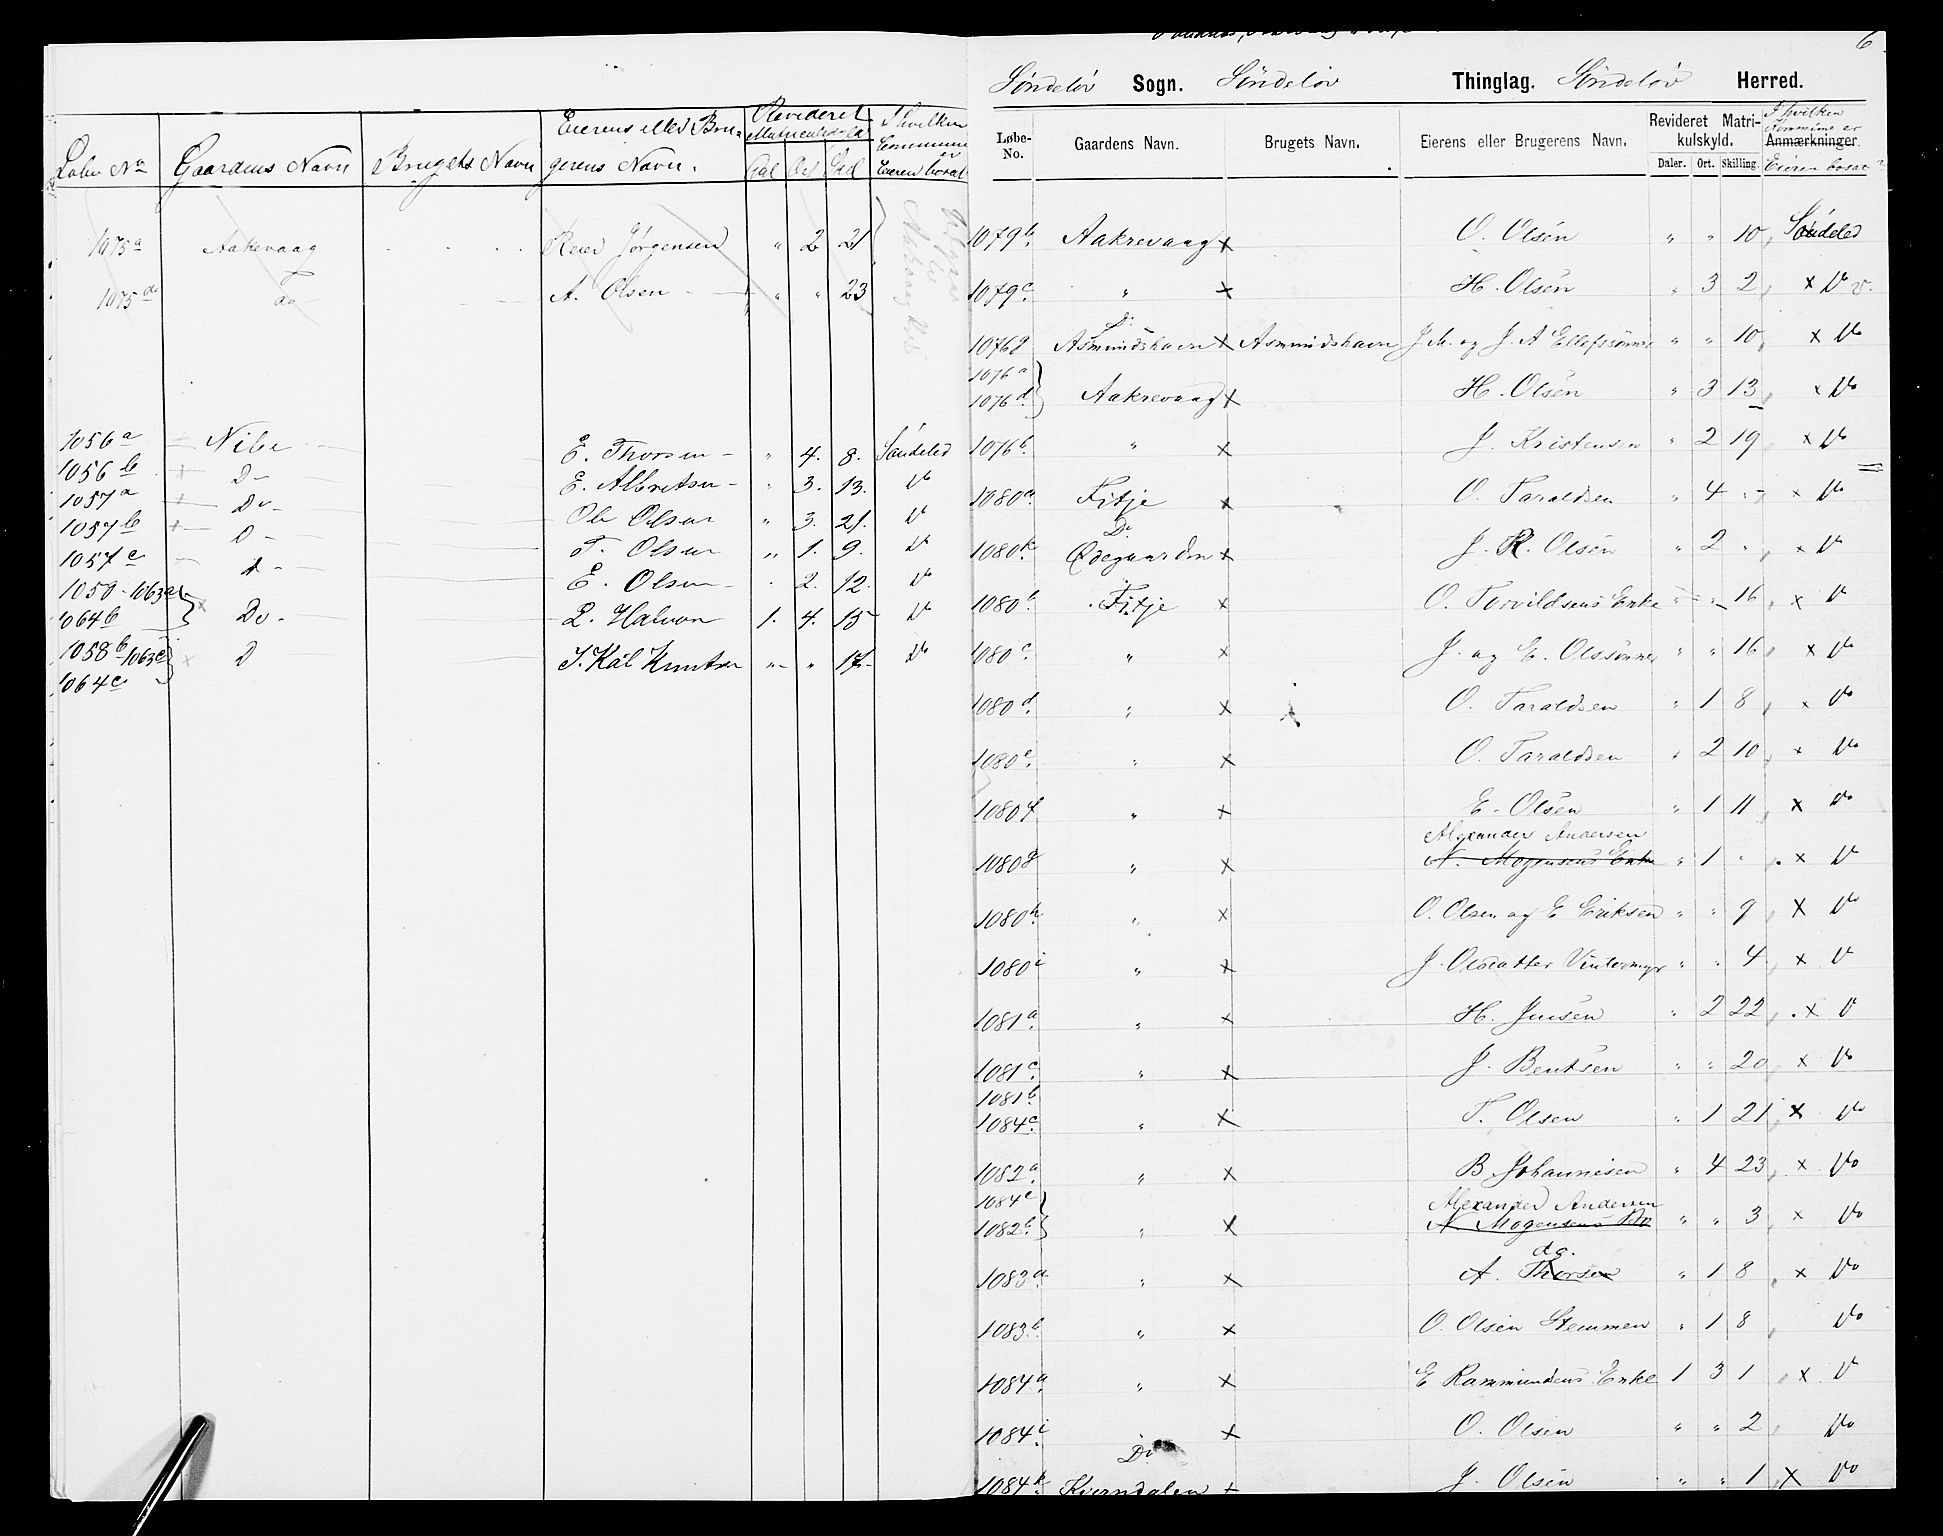 Løbe No Gaardens Navn Brugets Navn Eierens eller Bru-
gerens Navn. Revideret
Dal Ort Skil I hvilken
Commune
er
Eieren bosat
1075a Aakevaag Reier Jørgensen " 2 21
1075 do A. Olsen " " 23
1056a Nibe E. Thorsen " 4. 8. Søndeled
1056b D E. Albretsen " 3. 13. Do
1057a Do Ole Olsen " 3. 21. Do
1057b D T. Olsen " 1. 9. Do
1057c D E. Olsen " 2. 12. Do
1059-1063a
1064b Do L. Halvorsen 1. 4. 15 Do
1058b-1063c D J. Kål Knutsen " " 17 Do
1064c
6
Søndeløv Sogn. Søndeløv Thinglag. Søndeløv Herred.
Løbe-
No. Gaardens Navn. Brugets Navn. Eierens eller Brugerens Navn. Revideret Matri-
kulskyld.
Daler. Ort. Skilling. I hvilken
Kommune er
Anmærkninger.
Eieren bosat?
1079b. Aakrevaag x O. Olsen " " 10 Søndeled
1079c. " x H. Olsen " 3 2 x Do
1076g Do
Asmundshavn x Asmundshavn J. M. og J. A Ellefsønner " " 10 x Do
1076a
1076d. Aakrevaag x H. Olsen " 3 13 x Do
1076b. " x J. Kristensen " 2 19 x Do
1080a Fitje x O. Taraldsen " 4 " x Do
1080k. Do
Ødegaarden x J. R. Olsen " 2 " x Do
1080b. Fitje x O. Torvildsens Enke " " 16 x Do
1080c. " x J. og E. Olssønner " " 16 x Do
1080d. " x O. Taraldsen " 1 8 x Do
1080e. " x O. Taraldsen " 2 10 x Do
1080f " x E. Olsen " 1 11 x Do
Alexander Andersen
1080g " x N. Mogensens Enke " 1 " x Do
1080h " x O. Olsen og E Eriksen " " 9 x Do
1080i " x J. Olsdatter Vintermyr " " 4 x Do
1081a. " x H. Jensen " 2 22 x Do
1081c. " x J. Bentsen " " 20 x Do
1081b.
1084c. " x T. Olsen " 1 21 x Do
1082a. " x B. Johannesen " 4 23 x Do
1084e Alexander Andersen
1082b. " x N. Mogensens Do " " 3 x Do
do.
1083a " x A. Thorsen " 1 8 x Do
1083b. " x O. Olsen Stemmen " 1 8 Do
1084a. " x E Rammundens Enke 1 3 1 x Do
1084i. " x O. Olsen " " 2 Do
Do
1084k. Kjerndalen x J. Olsen " " 1 x Do